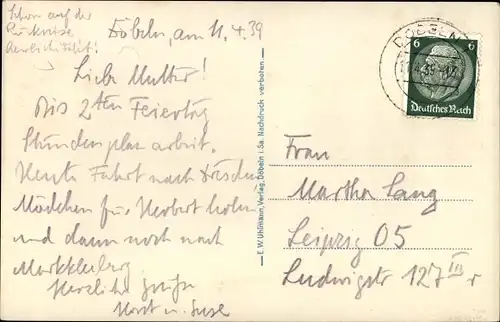 Schon auf der
Rückreise
Döbeln, am 11.4.39
Liebe Mutter!
Bis 2ten Feiertag
Stundenplan arbeit.
Heute Fahrt nach Dresden
Mädchen für Herbert holen
und dann noch nach
Markkleeberg
Herzliche Grüße
Horst u. Suse
E. W. Uhlmann, Verlag, Döbeln i. Sa. Nachdruck verboten.
DÖBELN
6 6
Deutsches Reich
Frau
Martha Lang
Leipzig O5
Ludwigstr 127 III r